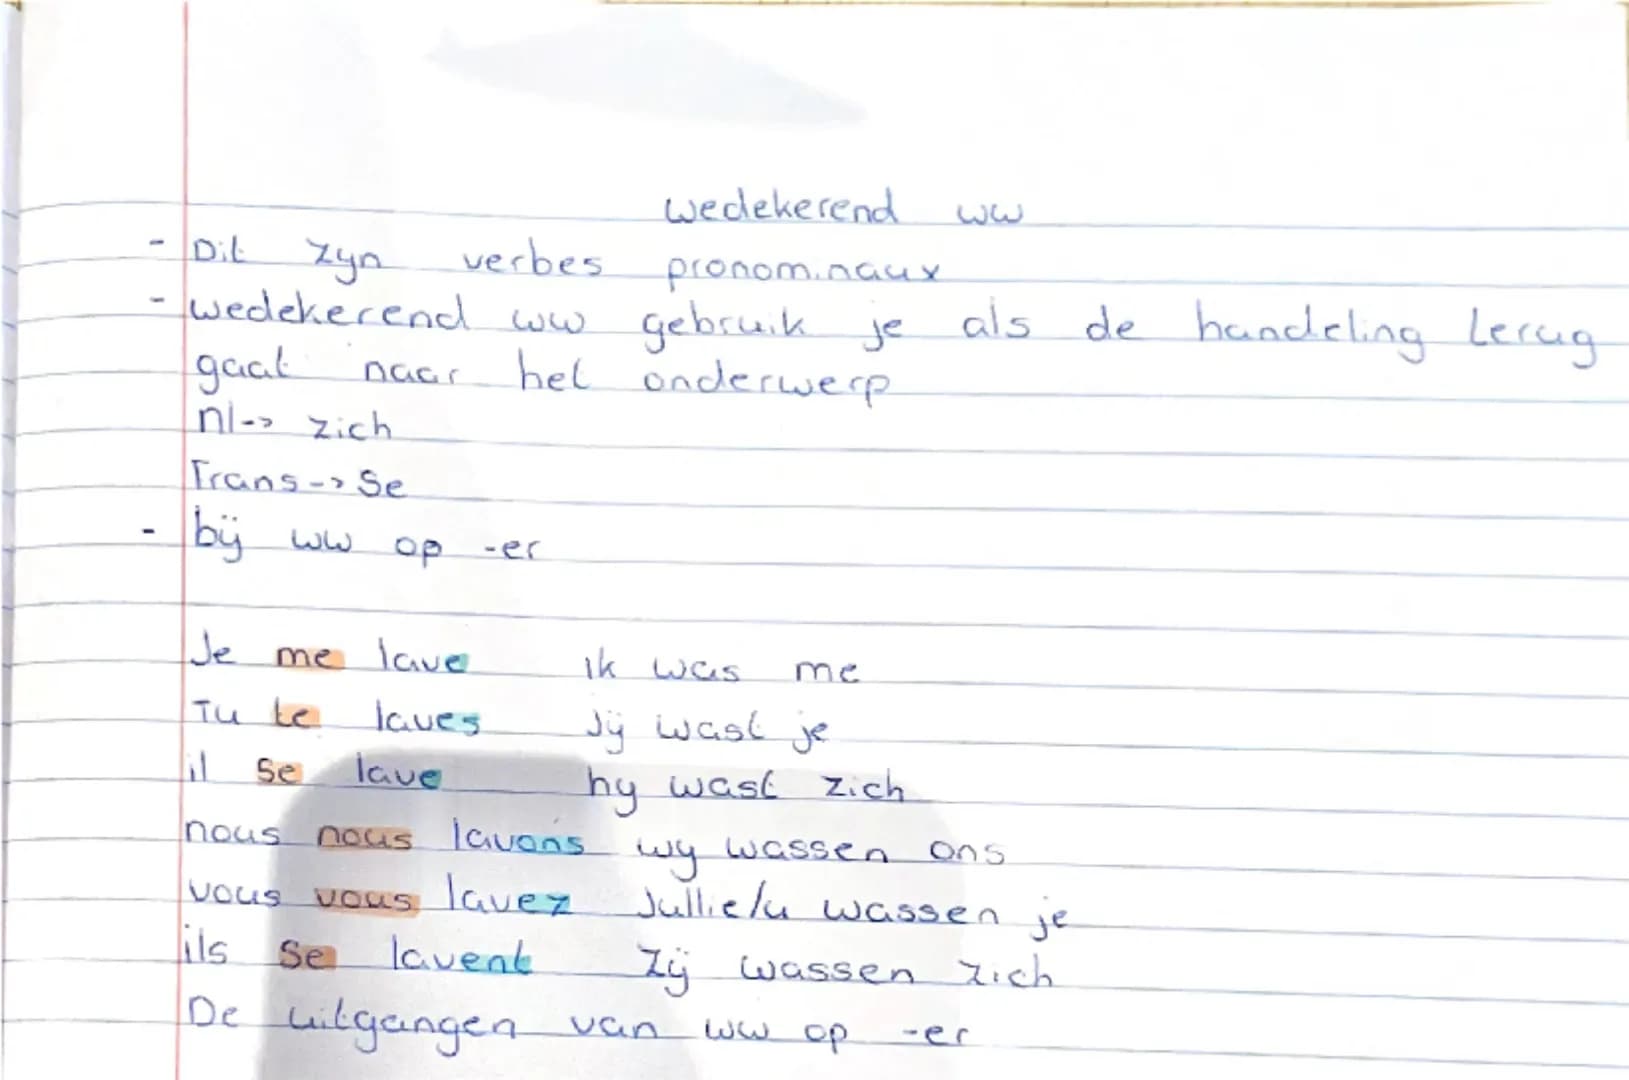 wedekerend ww
- Dit zyn verbes pronominaux
- wedekerend ww gebruik je als de handeling terug
gaat naar het onderwerp
nl -> zich
Frans -> Se
- bij ww op -er
Je me lave ik was me
Tu te laves Jij wast je
il se lave hy wast zich
nous nous lavons wy wassen ons
vous vous lavez Jullie/u wassen je
ils se lavent Zij wassen zich
De uitgangen van ww op -er